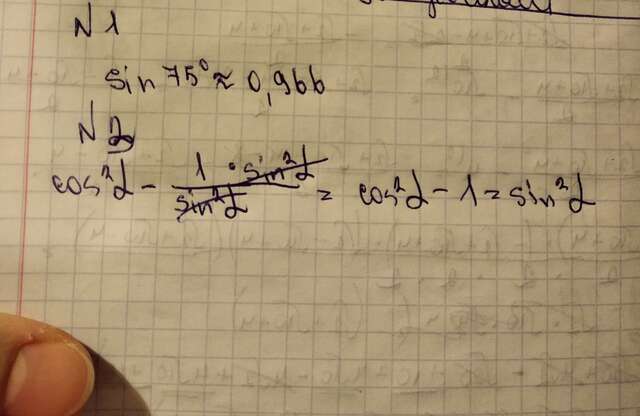 N 1
sin 75° ≈ 0,966
N 2
cos²α - (1 · sin²α)/(sin²α) = cos²α - 1 = sin²α